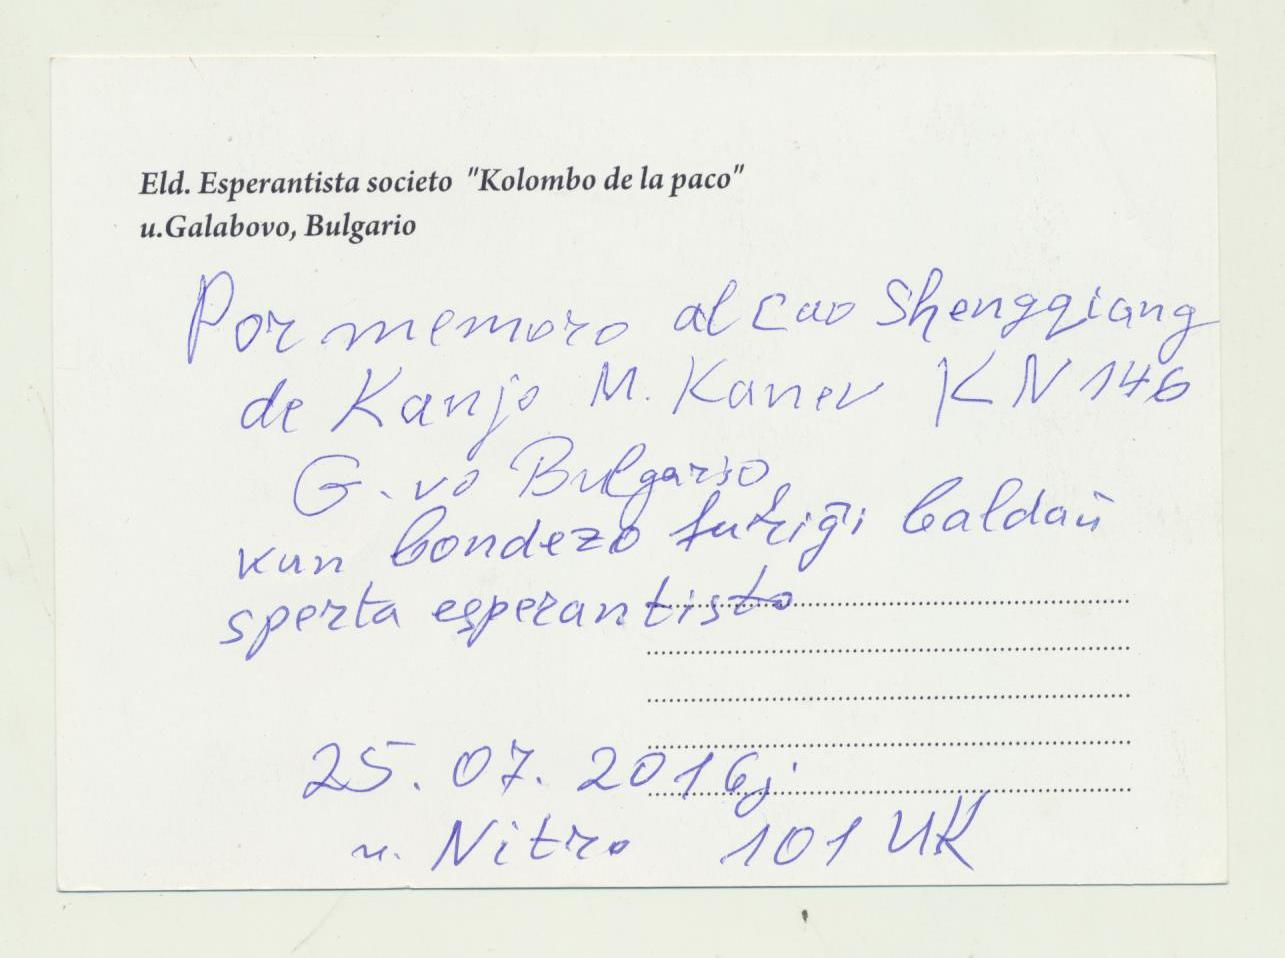 Eld. Esperantista societo "Kolombo de la paco"
u.Galabovo, Bulgario
Por memoro al Cao Shengqiang
de Kanjo M. Kanev KN 146
G.vo Bulgario
kun bondezo fariĝi baldaŭ
sperta esperantisto
25.07.2016j.
u. Nitro 101 UK